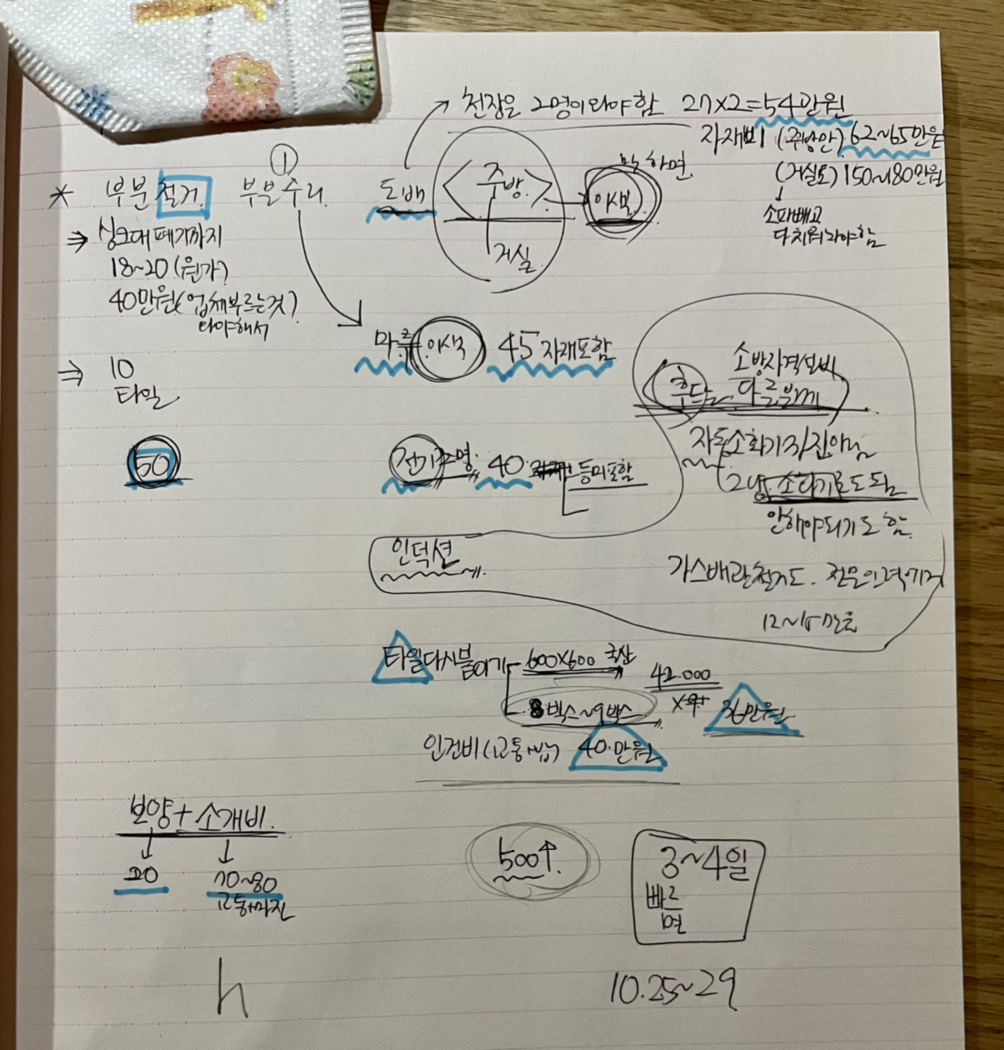 천장은 2명이 와야함 27X2=54만원
자재비 (주방만) 62~65만원
(거실도) 150~180만원
↓
소파빼고
다 치워놔야함
①
* 부분철거 부분수리 도배 <주방> → 이색
하면
거실
⇒ 싱크대 폐기까지
18~20 (원가)
40만원 (업체부르는것)
마루 이색 45 자재포함
⇒ 10
타일
50
소방자격설비
후드는 다른부께
전기조명. 40 등미포함
자동소화기 3/진아님
그냥 소다기로도 됨
안해야되기도 함.
인덕션
가스배관철거도. 전문인력
12~15만원
타일다시붙이기 600X600 국산
8박스~9박스
42.000
X 9
36만원
인건비 (교통+밥) 40만원
보양 + 소개비.
↓ ↓
20 70~80
교통+마진
500↑
3~4일
빠르면
h
10.25~29